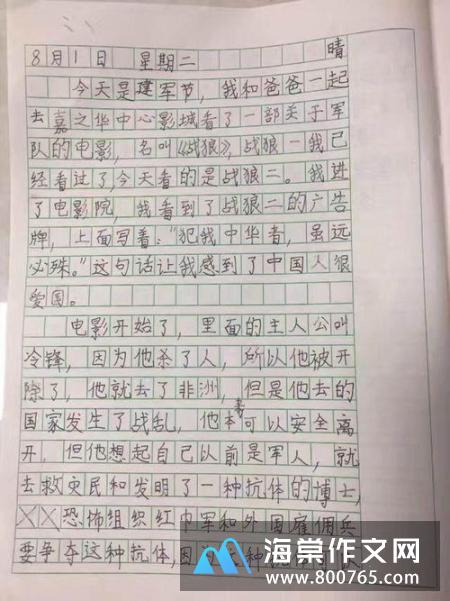 8月1日 星期二 晴
今天是建军节，我和爸爸一起
去嘉之华中心影城看了一部关于军
队的电影，名叫《战狼》，战狼一我已
经看过了，今天看的是战狼二。我进
了电影院，我看到了战狼二的广告
牌，上面写着："犯我中华者，虽远
必殊。"这句话让我感到了中国人很
爱国。
电影开始了，里面的主人公叫
冷锋，因为他杀了人，所以他被开
除了，他就去了非洲，但是他去的
国家发生了战乱，他本可以安全离
开，但他想起自己以前是军人，就
去救灾民和发明了一种抗体的博士，
恐怖组织红巾军和外国雇佣兵
要争夺这种抗体，因为这种
海棠作文网
www.800765.com